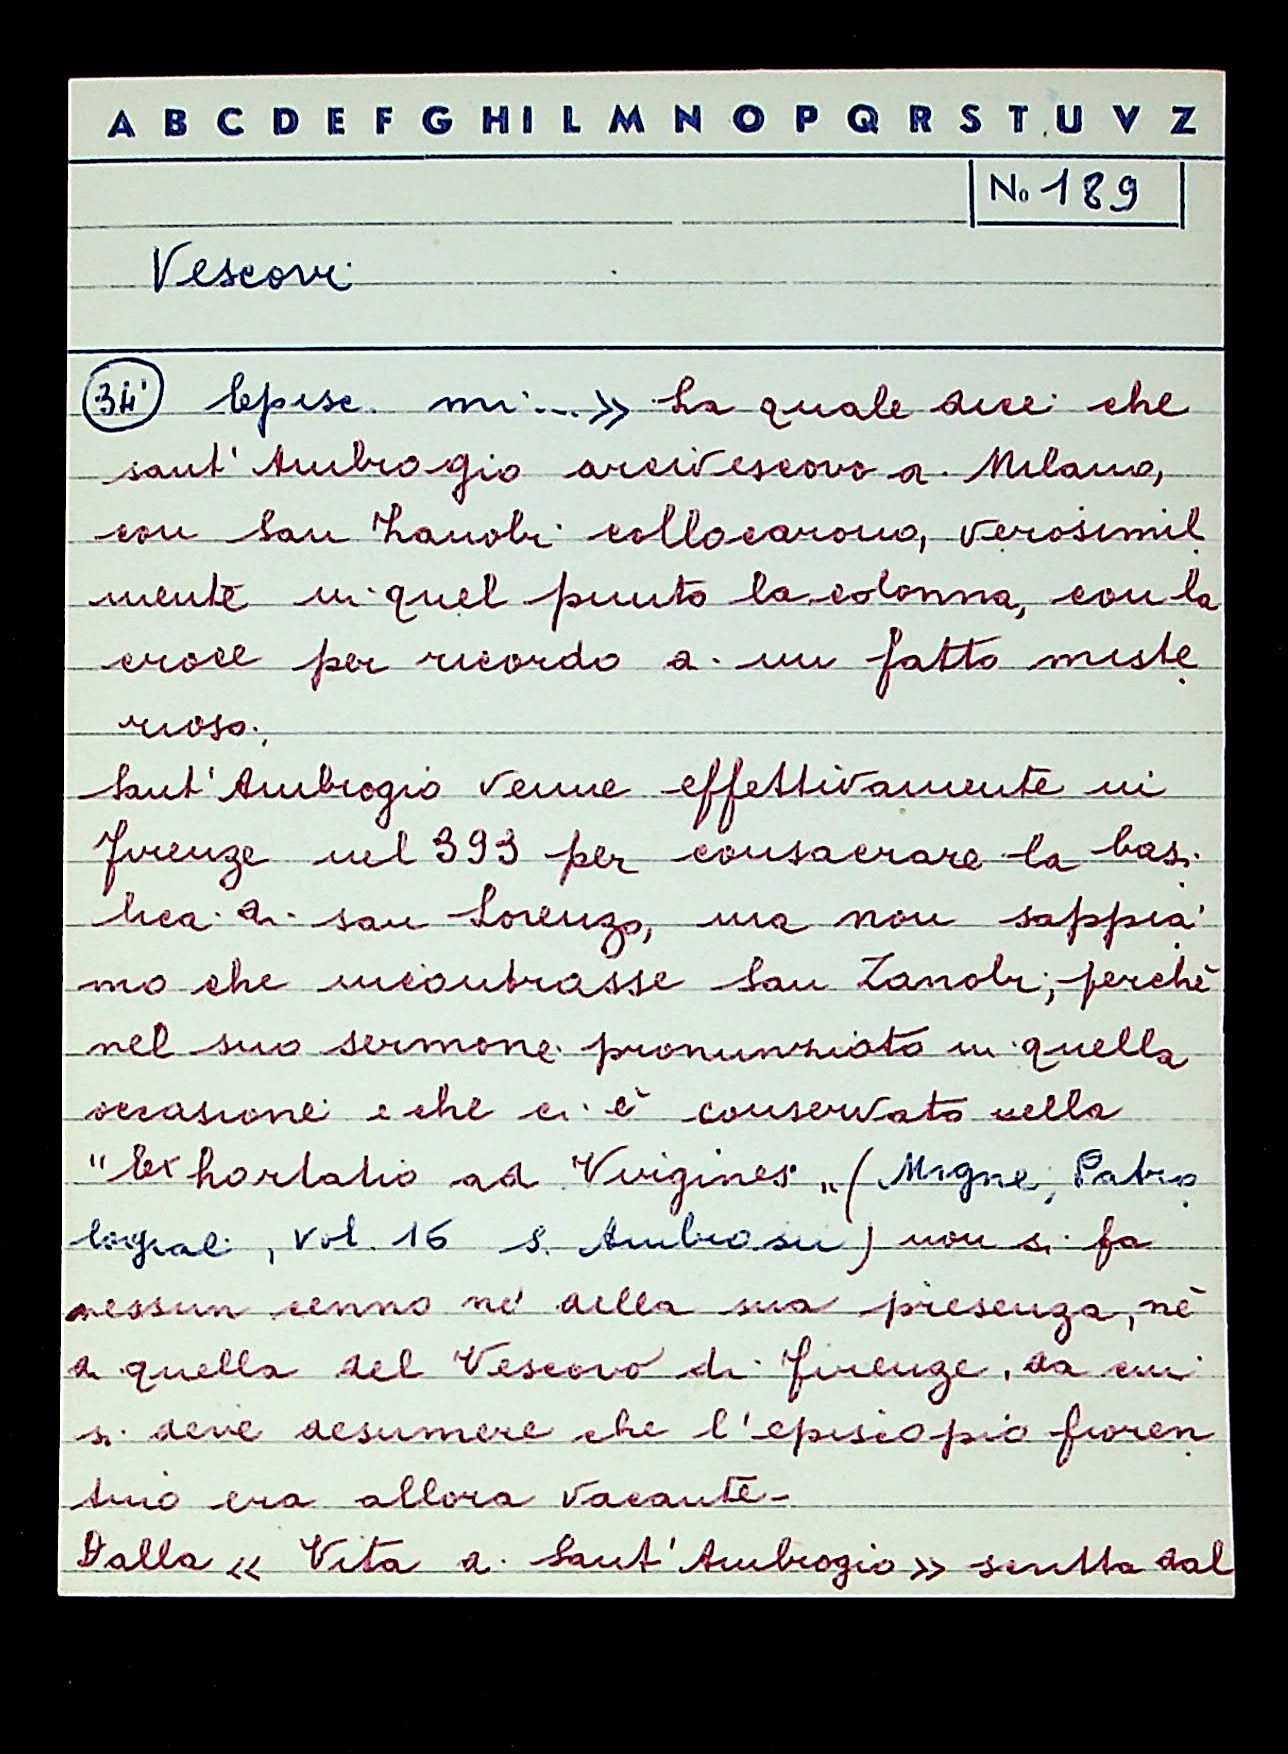 A B C D E F G H I L M N O P Q R S T U V Z
No 189
Vescovi
34' Episc. mi...» La quale dice che
sant' Ambrogio arcivescovo di Milano,
con San Zanobi collocarono, verosimil
mente in quel punto la colonna, con la
croce per ricordo di un fatto miste
rioso.
Sant' Ambrogio venne effettivamente in
Firenze nel 393 per consacrare la basi
lica di san Lorenzo, ma non sappia
mo che incontrasse San Zanobi; perchè
nel suo sermone pronunziato in quella
occasione e che ci è conservato nella
"Exhortatio ad Virgines" (Migne, Patro
logiae, vol. 16 S. Ambrosii) non si fa
nessun cenno nè della sua presenza, nè
di quella del Vescovo di Firenze, da cui
si deve desumere che l'episcopio fioren
tino era allora vacante-
Dalla « Vita di Sant' Ambrogio » scritta dal